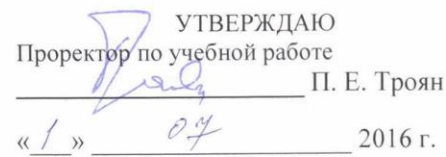 УТВЕРЖДАЮ
Проректор по учебной работе
П. Е. Троян
« 1 » 07 2016 г.